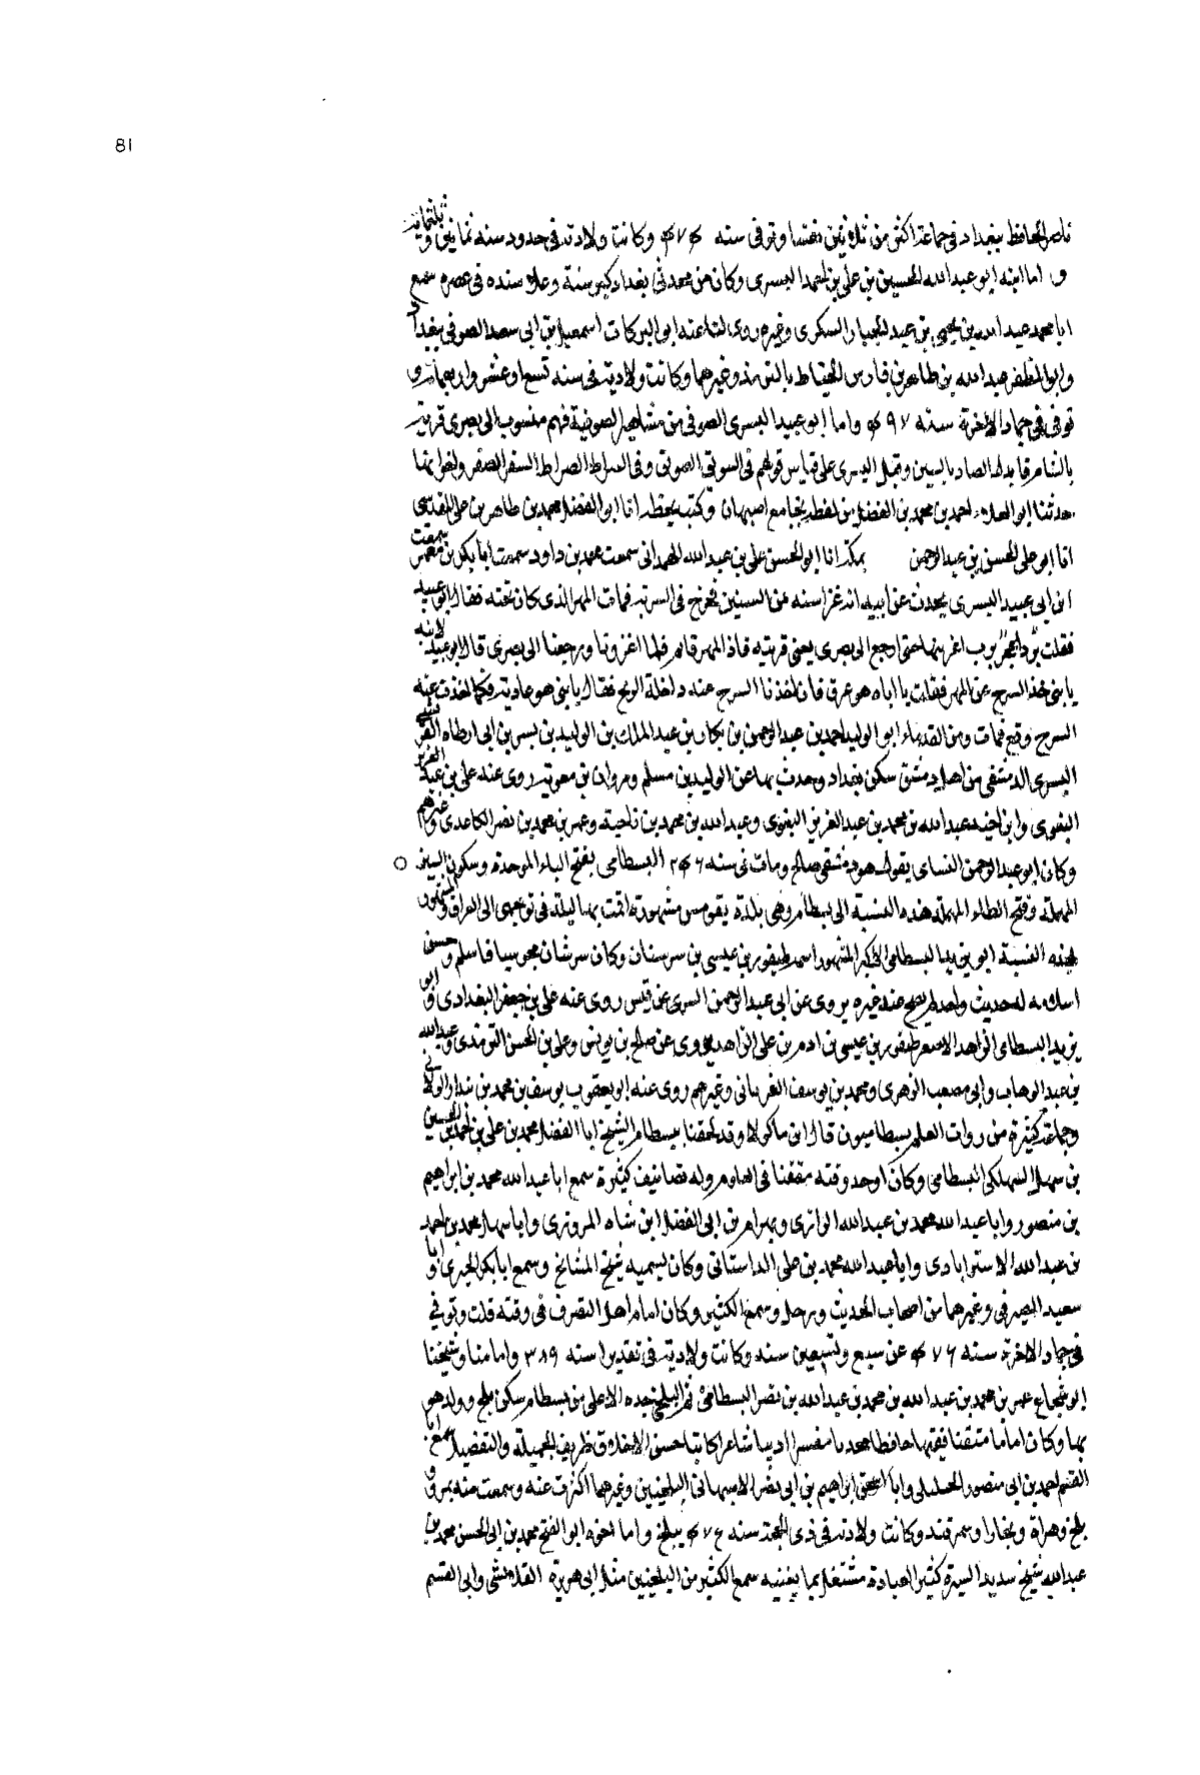 81
ناصر الحافظ ببغداد في جماعة اكثر من ثلاثين نفسا وتوفى سنه ۴۷۴ وكانت ولادته فى حدود سنه ثمانين وثلثمايه
و اما ابنه ابو عبدالله الحسين بن على بن احمد البسرى وكان من محدثى بغداد كبر سنة وعلو سنده فى عصره سمع
ابا محمد عبد الله بن يحيى بن عبد الجبار السكرى وغيره روى لنا عنه ابو البركات اسمعيل بن ابى سعد الصوفى ببغداد
وابو المظفر عبد الله بن طاهر بن فارس الخياط بالترمذ وغيرهما وكانت ولادته فى سنه تسع وعشر واربعمائة و
توفى فى جماد الاخرة سنه ۴۹۷ و واما ابو عبيد البسرى الصوفى من مشاهير الصوفية فهم منسوب الى بصرى قرية
بالشام فابدل الصاد بالسين وقيل البسرى على قياس قولهم فى السوق الصوق وفى السراط الصراط السقر الصقر واخواتها
حدثنا ابو العلاء احمد بن محمد بن الفضل من لفظه بجامع اصبهان وكتب بخطه انا ابو الفضل محمد بن طاهر بن على المقدسى
انا ابو على الحسن بن عبد الرحمن بمكة انا ابو الحسن على بن عبد الله الهمدانى سمعت محمد بن داود سمعت ابا بكر بن معمر سمعت
ابن ابى عبيد البسرى يحدث عن ابيه انه غزا سنه من السنين فخرج فى السرية فمات المهر الذى كان تحته فقال ابو عبيد
فقلت يا رب اعرنيها حتى ارجع الى بصرى يعنى قريته فاذ المهر قائم فلما اغزونا ورجعنا الى بصرى قال ابو عبيد لابنه
يا بنى خذ السرج عن المهر فقلت يا اباه هو عرق فان اخذنا السرج عنه داخلة الريح فقال يا بنى هو عادية فكما اخذت عنه
السرج وقع فمات ومن القدماء ابو الوليد احمد بن عبد الرحمن بن بكار بن عبد الملك بن الوليد بن بسر بن ابى ارطاه القرشى
البسرى الدمشقى من اهل دمشق سكن بغداد وحدث بها عن الوليد بن مسلم ومروان بن معوية روى عنه على بن عبد العزيز
البغوى وابن اخيه عبد الله بن محمد بن عبد العزيز البغوى وعبد الله بن محمد بن ناجية وعمر بن محمد بن نصر الكاغدى وغيرهم
وكان ابو عبد الرحمن النساى يقول هو دمشقى صالح ومات فى سنه ۲۴۶ البسطامى بفتح الباء الموحدة وسكون السين
المهملة وفتح الطاء المهملة هذه النسبة الى بسطام وهى بلدة بقومس مشهورة اقمت بها ليلة فى توجهى الى العراق والمنتسبون
بهذه النسبة ابو يزيد البسطامى الاكبر المشهور اسمه طيفور بن عيسى بن سرسان وكان سرشان مجوسيا فاسلم وحسن
اسلامه له حديث واحد لم يصح عنه غيره يروى عن ابى عبد الرحمن السرى عن قيس روى عنه على بن جعفر البغدادى و ابو
يزيد البسطامى الزاهد الاصغر طيفور بن عيسى بن ادم بن على الزاهد يروى عن صالح بن يونس وعلى بن الحسن الترمذى وعبد الله
بن عبد الوهاب وابى مصعب الزهرى ومحمد بن يوسف الفريابى وغيرهم روى عنه ابو يعقوب يوسف بن محمد بن بندار الولانى
وجماعة كثيرة من روات العلم بسطاميون قال ابن ماكولا وقد لحقنا ببسطام الشيخ ابا الفضل محمد بن على بن احمد بن الحسين
بن سهل السهلكى البسطامى وكان اوحد وقته مفننا فى العلوم وله تصانيف كثيرة سمع ابا عبد الله محمد بن ابراهيم
بن منصور وابا عبد الله محمد بن عبد الله الرازى وبهرام بن ابى الفضل ابن شاه المروزى وابا سهل محمد بن احمد
بن عبد الله الاستراباذى وابا عبد الله محمد بن على الداستانى وكان يسميه شيخ المشائخ وسمع ابا بكر الحيرى وابا
سعيد الصيرفى وغيرهما من اصحاب الحديث ورحل وسمع الكثير وكان امام اهل التصرف فى وقته قلت وتوفى
فى جماد الاخرة سنه ۴۷۶ عن سبع وتسعين سنه وكانت ولادته فى تقدير سنه ۳۸۹ وامامنا وشيخنا
ابو شجاع عمر بن محمد بن عبد الله بن محمد بن عبد الله بن نصر البسطامى ثم البلخى جده الاعلى من بسطام سكن بلخ وولد هو
بها وكان اماما متقنا فقيها حافظا محدثا مفسرا اديبا شاعرا كاتبا حسن الاخلاق ظريف الجملة والتفصيل سمع ابا
القسم احمد بن ابى منصور الخليلى وابا اسحق ابراهيم بن ابى نصر الاصبهانى البلخيين وغيرهما اكثرت عنه وسمعت منه بمرو و
بلخ وهراة وبخارا وسمرقند وكانت ولادته فى ذى الحجة سنه ۴۷۵ ببلخ واما اخوه ابو الفتح محمد بن ابى الحسن محمد بن
عبد الله شيخ سديد السيرة كثير العبادة مشتغل بما يعنيه سمع الكثير من البلخيين مثل ابى هريرة القلانسى وابى القسم